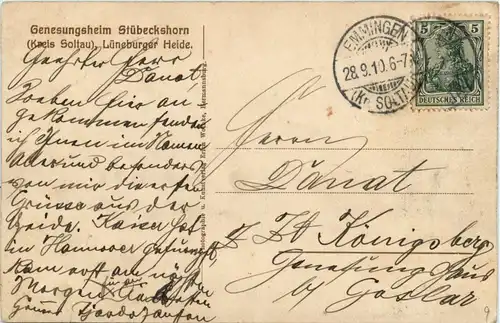 Genesungsheim Stübeckshorn
(Kreis Soltau), Lüneburger Heide.
Geehrter Herr
Danat,
Soeben hier an
gekommen sende
ich Ihnen im Namen
Aller und besonders
von mir die ersten
Grüsse aus der
Heide. Kaiser hat
in Hannover
Kam erst am
Morgen
Gruss
EMMINGEN
28.9.10.6-7
(Kr. SOLTAU)
5 5
DEUTSCHES REICH
Herrn
Danat
z. Zt Königsberg
Genesungshaus
b/ Goslar